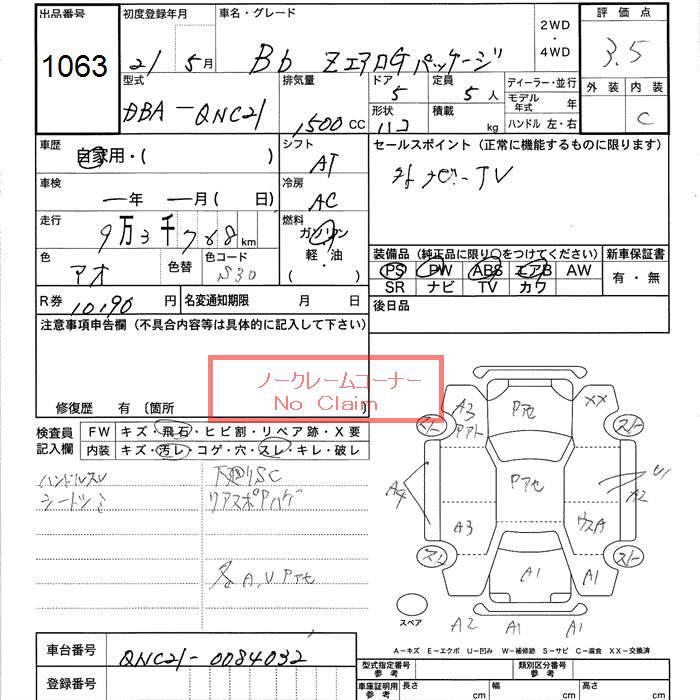 出品番号 初度登録年月 車名・グレード 2WD・4WD 評価点
1063 21 5月 Bb ZエアロGパッケージ 3.5
型式 排気量 ドア 定員 ディーラー・並行 外装 内装
DBA-QNC21 1500 CC 5 5人 モデル年式 年 C
形状 積載 kg ハンドル 左・右
車歴 自家用・( ) シフト AT セールスポイント (正常に機能するものに限ります)
車検 ー年 ー月( 日) 冷房 AC ナビ-TV
走行 9万3千768km 燃料 ガソリン
軽・油
( )
色 アオ 色替 色コード S30
装備品 (純正品に限り○をつけてください) 新車保証書
PS PW ABS エアB AW 有・無
SR ナビ TV カワ
R券 10190円 名変通知期限 月 日 後日品
注意事項申告欄 (不具合内容等は具体的に記入して下さい)
ノークレームコーナー
No Claim
修復歴 有 〔箇所
検査員記入欄 FW キズ・飛石・ヒビ割・リペア跡・X要
内装 キズ・汚レ・コゲ・穴・スレ・キレ・破レ
ハンドルスレ 下廻りSC
シートシミ リアスポアハゲ
各A,Uアセ
A3 アセ XX
スレ スレ
A4 アセ A2
A3 ウスA
スレ スレ
A1 A1
スペア A2 A1 A1
A-キズ E-エクボ U-凹み W-補修跡 S-サビ C-腐食 XX-交換済
車台番号 QNC21-0084032
登録番号
型式指定番号 参考 類別区分番号 参考
車庫証明用 参考 長さ cm 幅 cm 高さ cm